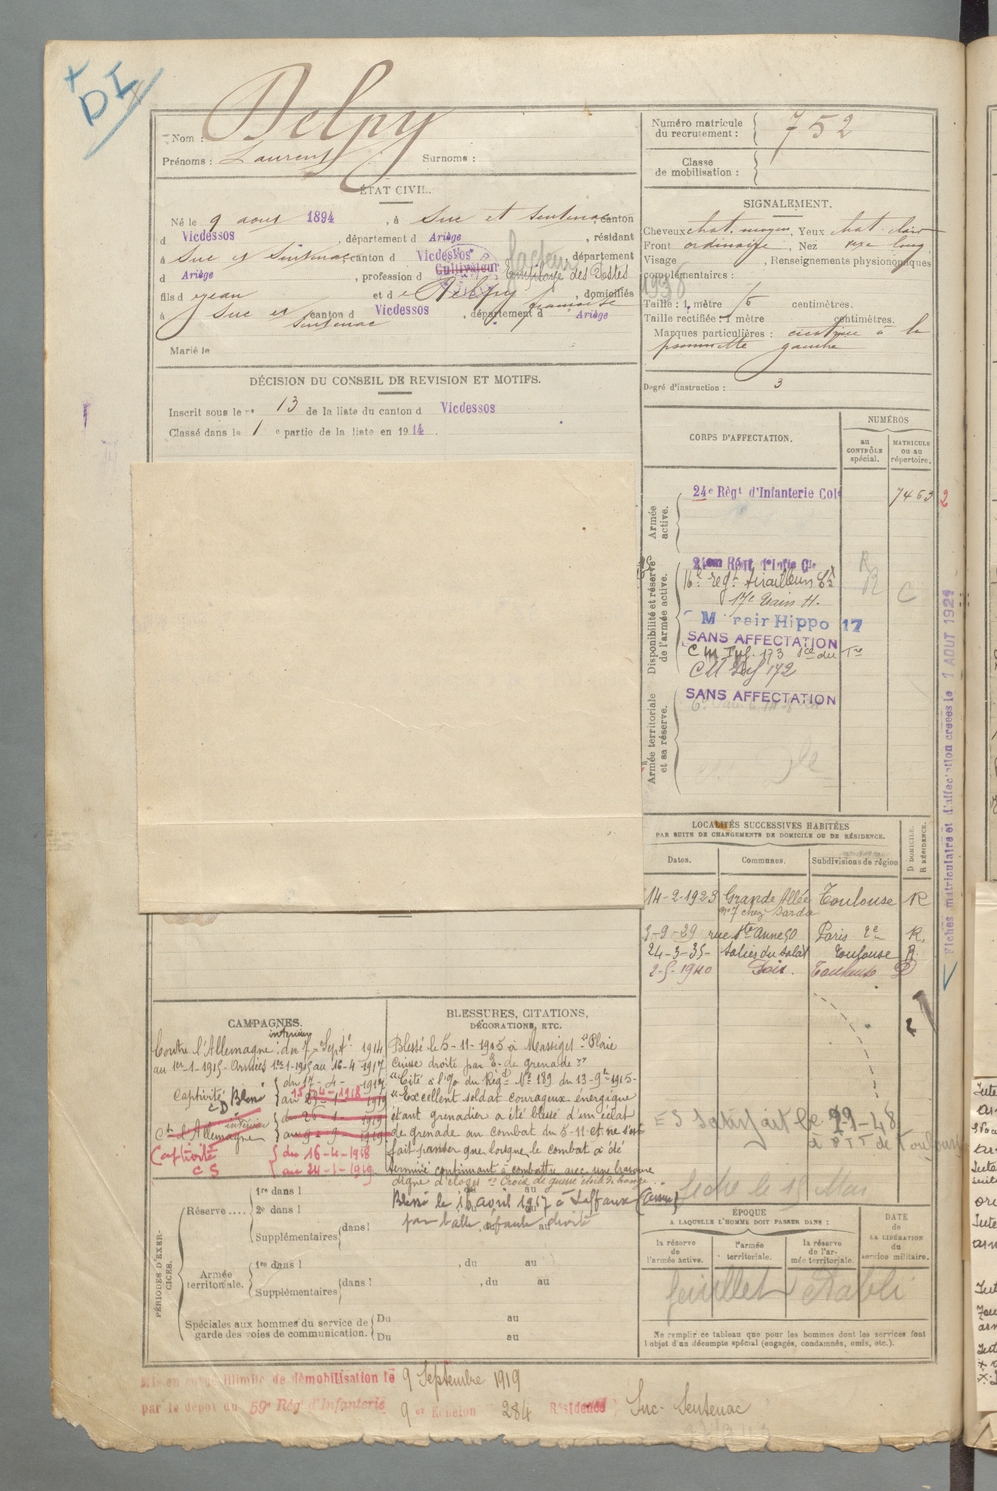 + DI
Nom : Delpy
Prénoms : Laurent Surnoms :
ÉTAT CIVIL.
Né le 9 aout 1894, à Suc et Sentenac, canton
d Vicdessos, département d Ariège, résidant
à Suc et Sentenac canton d Vicdessos département
d Ariège, profession d Cultivateur facteur Employé des Postes
fils d e Jean et d e Delpy françoise, domiciliés
à Suc et Sentenac canton d Vicdessos, département d Ariège
Marié le
DÉCISION DU CONSEIL DE REVISION ET MOTIFS.
Inscrit sous le n° 13 de la liste du canton d Vicdessos
Classé dans la 1 e partie de la liste en 1914.
Numéro matricule du recrutement : 752
Classe de mobilisation :
SIGNALEMENT.
Cheveux chat. moyen, Yeux chat. clair
Front ordinaire, Nez long
Visage , Renseignements physionomiques
complémentaires :
1938
Taille : 1 mètre 6 centimètres.
Taille rectifiée : 1 mètre centimètres.
Marques particulières : cicatrice à la
pommette gauche
Degré d'instruction : 3
CORPS D'AFFECTATION.
NUMÉROS
au CONTRÔLE spécial.
MATRICULE OU AU répertoire.
Armée active.
24e Régt d'Infanterie Col 7463 2
Disponibilité et réserve de l'armée active.
16e régt Tirailleurs
17e Train H.
R R C
Hippo 17
SANS AFFECTATION
C M Inf. 173
CM Inf 172
Armée territoriale et sa réserve.
SANS AFFECTATION
LOCALITÉS SUCCESSIVES HABITÉES
PAR SUITE DE CHANGEMENTS DE DOMICILE OU DE RÉSIDENCE.
Dates. Communes. Subdivisions de région D DOMICILE. R RÉSIDENCE.
14-2-1923 Grande Allée n° 7 chez Sarda Toulouse R
3-9-29 rue Ste Anne 50 Paris R.
24-3-35- Salies du Salat Toulouse R
2-5-1940 Foix. Toulouse D
Fiches matriculaire et d'affectation créées le 1 AOUT 1921
CAMPAGNES.
Contre l'Allemagne : intérieur du 7 Septe 1914
au 1er-1-1915- Armées 1er-1-1915 au 16-4-1917
Blessé du 17-4-1917
Captivité
Cte l'Allemagne intérieur
Captivité du 16-4-1918
CS au 24-1-1919
BLESSURES, CITATIONS,
DÉCORATIONS, ETC.
Blessé le 5-11-1915 à Massiges "Plaie
cuisse droite par E. de grenade"
"Cité à l'O. du Régt N° 189 du 13-9bre 1915-
"Excellent soldat courageux énergique
étant grenadier a été blessé d'un éclat
de grenade au combat du 5-11 et ne s'est
fait panser que lorsque le combat a été
terminé continuant à combattre avec une bravoure
digne d'éloges" Croix de guerre étoile de bronze
Blessé le 16 avril 1917 à Laffaux (Aisne)
par balle, épaule droite
PÉRIODES D'EXERCICES.
Réserve....
1re dans l au
2e dans l , du au
Supplémentaires dans l , du au
Armée territoriale.
1re dans l , du au
Supplémentaires dans l , du au
Spéciales aux hommes du service de garde des voies de communication.
Du au
Du au
ES Satisfait le 29-1-48
à PTT de Toulouse
ÉPOQUE
A LAQUELLE L'HOMME DOIT PASSER DANS :
DATE DE LA LIBÉRATION du service militaire.
la réserve de l'armée active.
l'armée territoriale.
la réserve de l'armée territoriale.
feuillet Rabli
Ne remplir ce tableau que pour les hommes dont les services font
l'objet d'un décompte spécial (engagés, condamnés, omis, etc.).
Mis en congé illimité de démobilisation le 9 Septembre 1919
par le dépôt du 59e Rég. d'Infanterie 9 e Échelon 284 Résidence : Suc-Sentenac